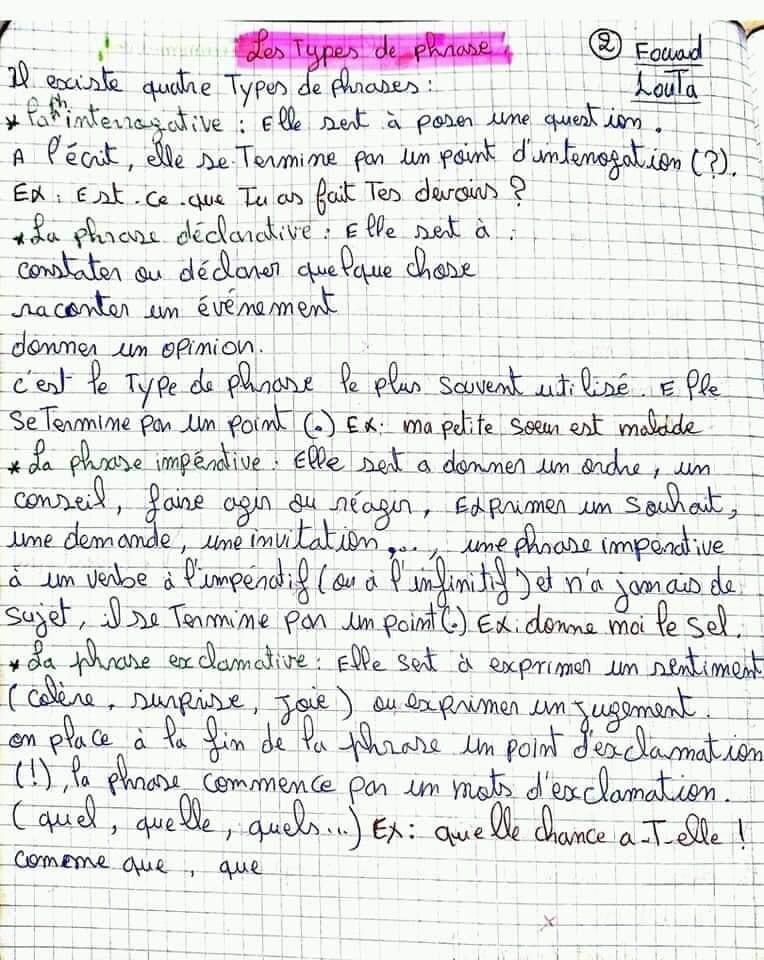 Les Types de phrase. ② Fouad
Il existe quatre Types de Phrases : LouTa
* la ph interrogative : Elle sert à poser une question.
A l'écrit, elle se Termine par un point d'interrogation (?).
Ex : Est-ce-que Tu as fait Tes devoirs ?
* La phrase déclarative : Elle sert à :
constater ou déclarer quelque chose
raconter un événement
donner un opinion.
c'est le Type de phrase le plus souvent utilisé. Elle
se Termine par un point (.) Ex : ma petite soeur est malade
* La phrase impérative : Elle sert a donner un ordre, un
conseil, faire agir ou réagir, Exprimer un souhait,
une demande, une invitation,..., une phrase impérative
à un verbe à l'impératif (ou à l'infinitif) et n'a jamais de
sujet, il se Termine par un point (.) Ex : donne moi le sel.
* La phrase exclamative : Elle sert à exprimer un sentiment
(colère, surprise, joie) ou exprimer un jugement.
on place à la fin de la phrase un point d'exclamation
(!), la phrase commence par un mots d'exclamation.
(quel, quelle, quels...) Ex : quelle chance a-T-elle !
comeme que, que